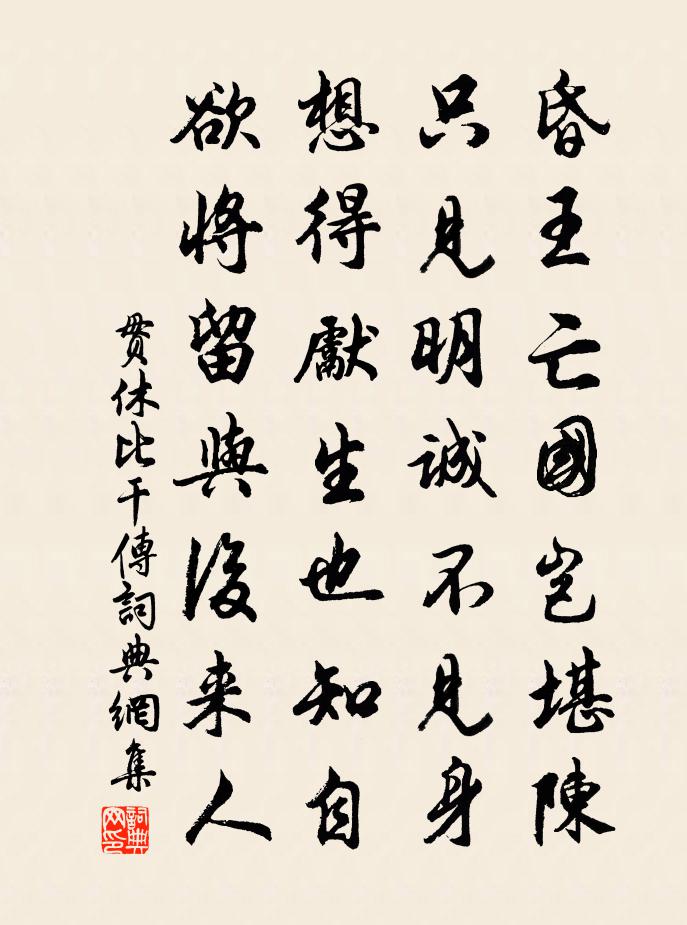 昏王亡國豈堪陳
只見明誠不見身
想得獻生也知自
欲將留與後来人
貫休比干傳詞典網集
詞典
网印